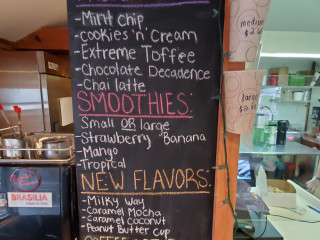 -Mint chip
-cookies 'n' Cream
-Extreme Toffee
-Chocolate Decadence
-Chai latte
SMOOTHIES:
Small OR large
-Strawberry Banana
-Mango
-Tropical
NEW FLAVORS:
-Milky way
-Caramel Mocha
-Caramel Coconut
-Peanut Butter Cup
medium
large
BRASILIA